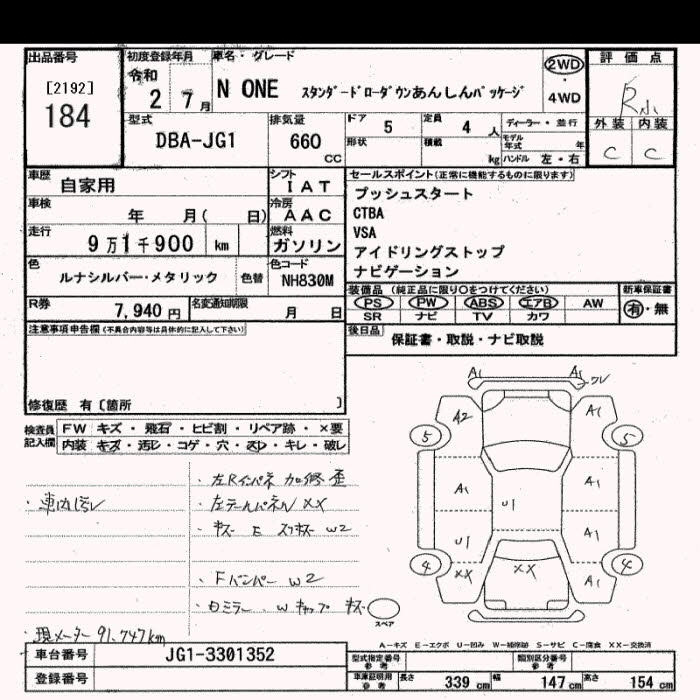 出品番号
[2192]
184
初度登録年月
令和
2 7月
車名・グレード
N ONE スタンダードローダウンあんしんパッケージ
2WD
・
4WD
評価点
R小
外装 内装
C C
型式
DBA-JG1
排気量
660
cc
ドア 5
定員 4 人
ディーラー・並行
形状
積載 kg
モデル年式 年
ハンドル 左・右
車歴
自家用
シフト
IAT
車検
年 月( 日)
冷房
AAC
走行
9万1千900 km
燃料
ガソリン
色
ルナシルバー・メタリック
色替
色コード
NH830M
R券
7,940 円
名変通知期限
月 日
セールスポイント(正常に機能するものに限ります)
プッシュスタート
CTBA
VSA
アイドリングストップ
ナビゲーション
装備品 (純正品に限り○をつけてください)
PS PW ABS エアB AW
SR ナビ TV カワ
新車保証書
有・無
後日品
保証書・取説・ナビ取説
注意事項申告欄(不具合内容等は具体的に記入して下さい)
修復歴 有〔箇所 〕
検査員記入欄
FW キズ・飛石・ヒビ割・リペア跡・×要
内装 キズ・汚レ・コゲ・穴・スレ・キレ・破レ
・車内汚レ
・左Rインパネ 加修歪
・左テールパネル XX
・キズ E スリキズ W2
・Fバンパー W2
・Dミラー W キャップ キズ
・現メーター 91,747km
A1 A1 ワレ
A2 A1
5 5
A1 U1 A1
U1 A1
4 XX XX A1 4
スペア
A－キズ E－エクボ U－凹み W－補修跡 S－サビ C－腐食 XX－交換済
車台番号
JG1-3301352
登録番号
型式指定番号
参考
類別区分番号
参考
車庫証明用
参考
長さ 339 cm 幅 147 cm 高さ 154 cm